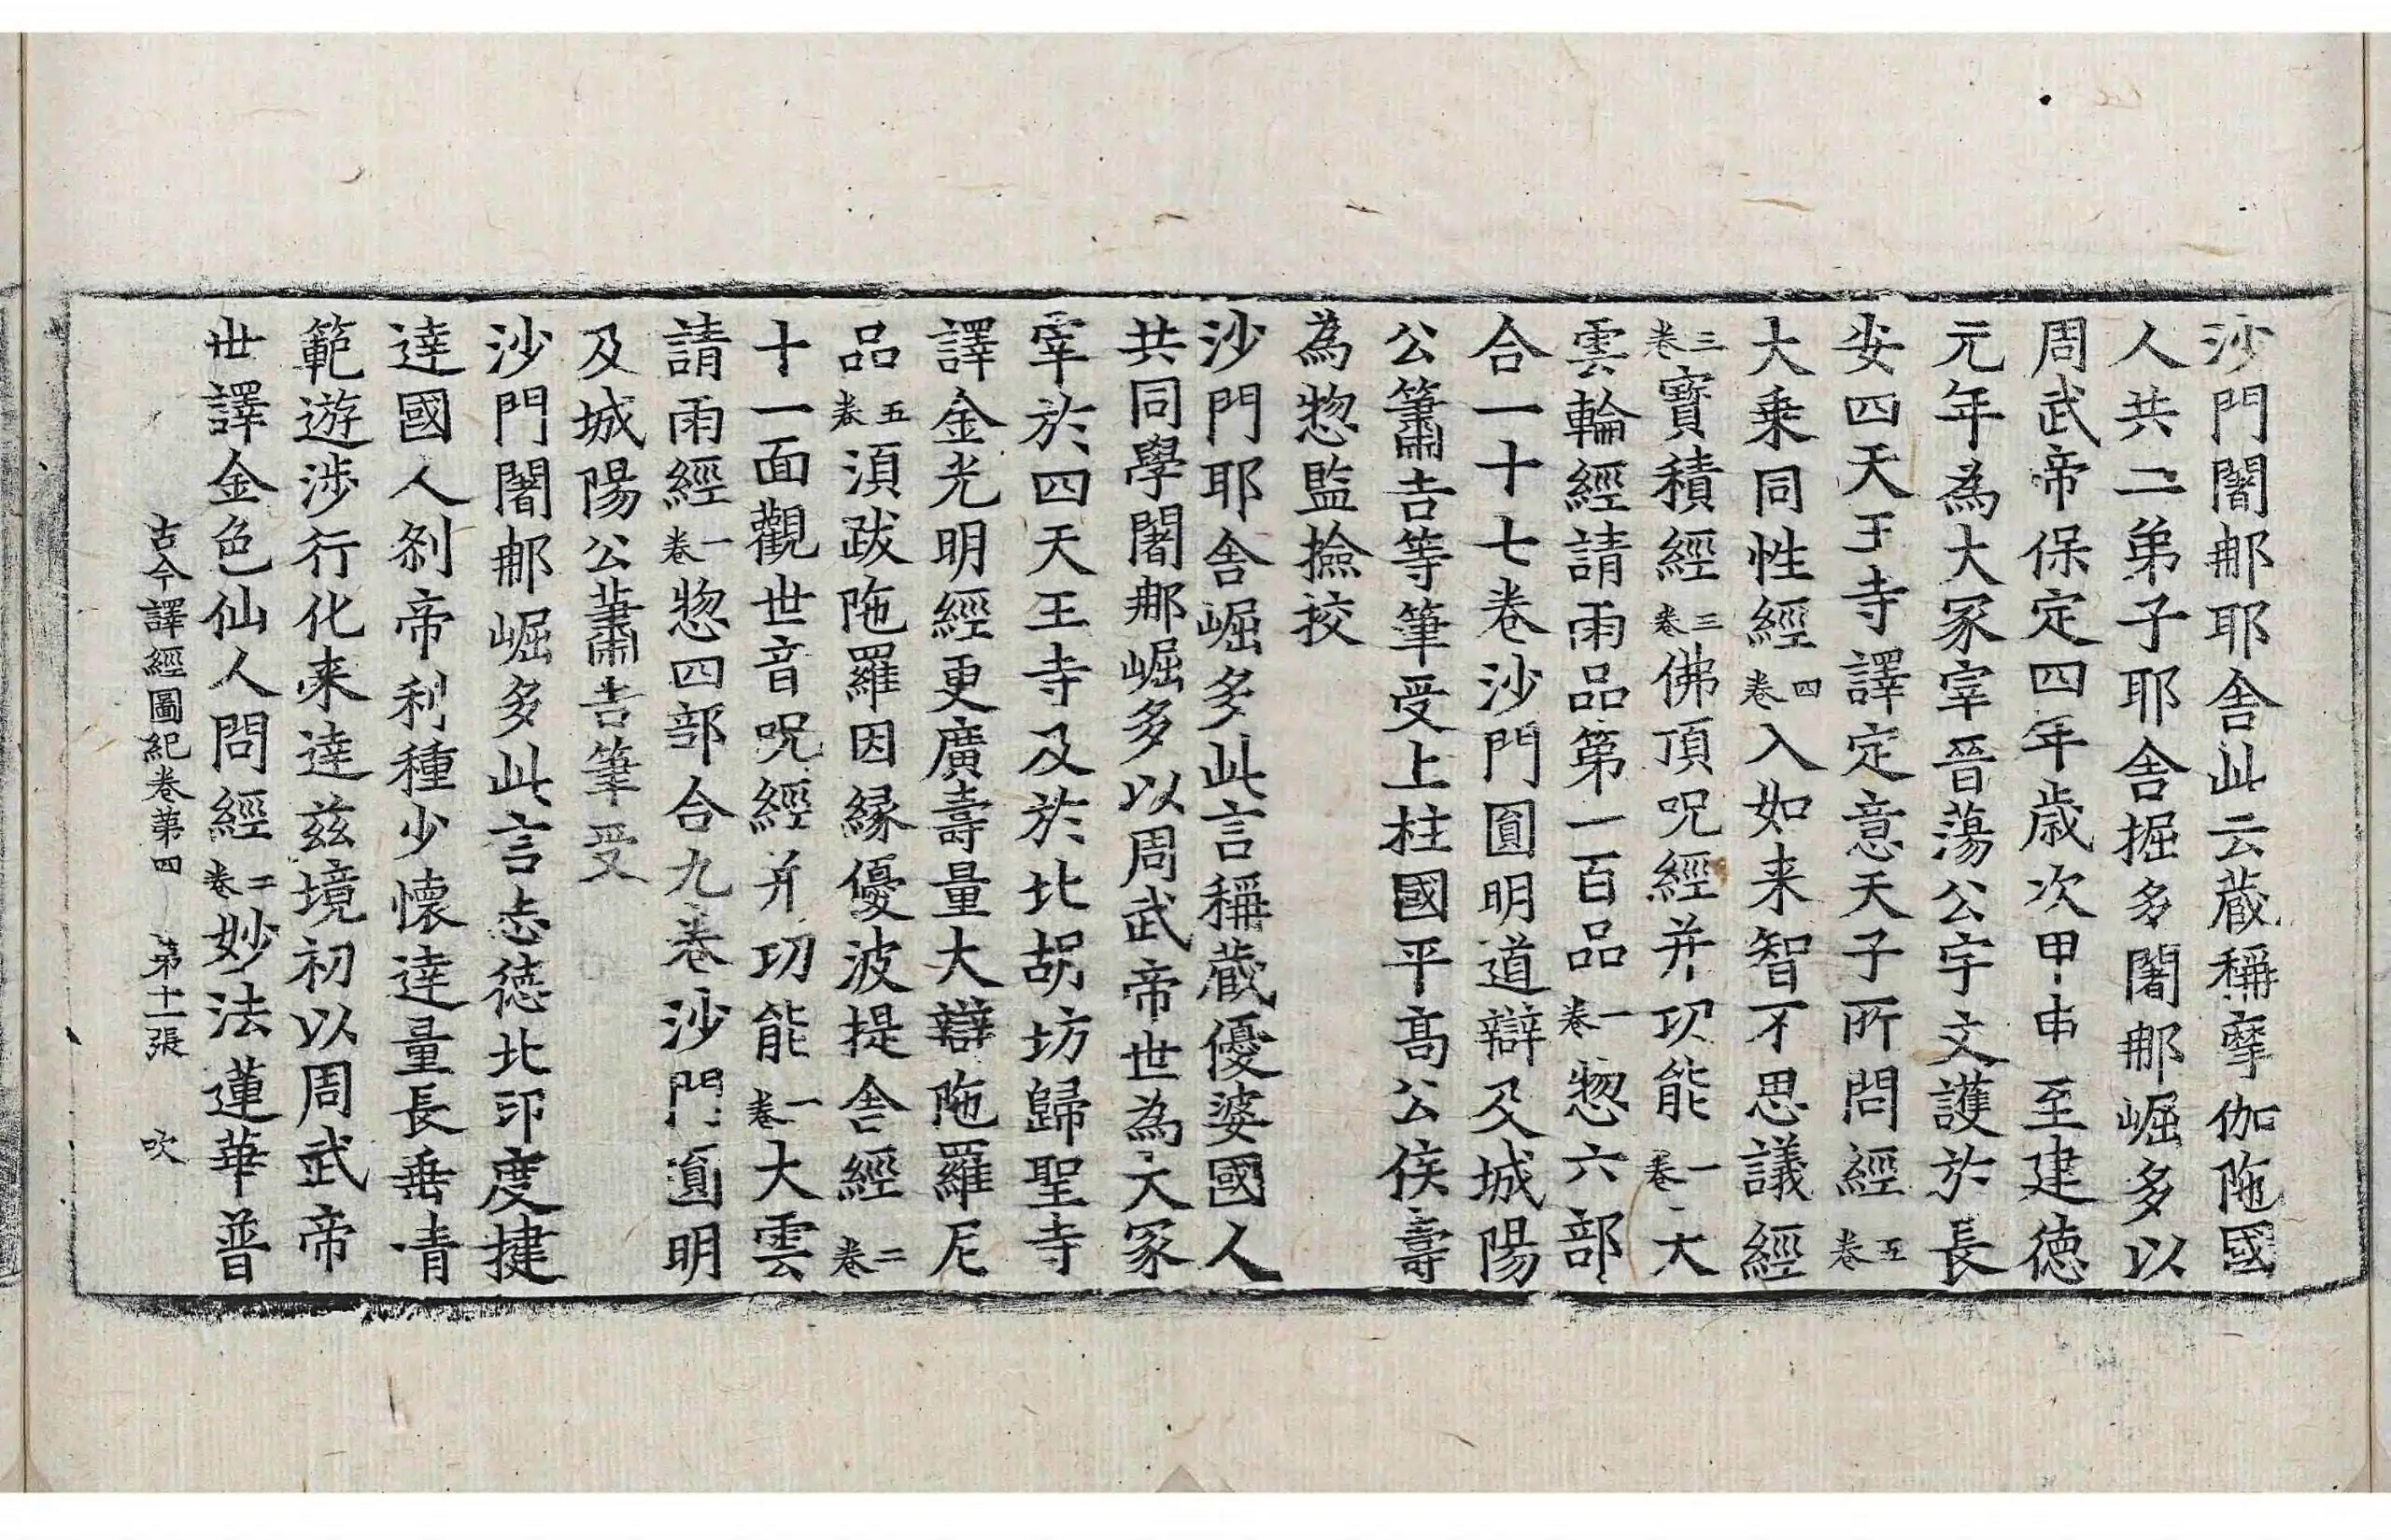 沙門闍那耶舍此云蔵稱摩伽陁國
人共二弟子耶舍掘多闍那崛多以
周武帝保定四年歲次甲申至建德
元年為大冢宰晉蕩公宇文護於長
安四天王寺譯定意天子所問經五卷
大乗同性經四卷入如来智不思議經
三卷寶積經三卷佛頂呪經并功能一卷大
雲輪經請雨品第一百品一卷惣六部
合一十七卷沙門圓明道辯及城陽
公蕭吉等筆受上柱國平髙公侯壽
為惣監撿挍
沙門耶舍崛多此言稱蔵優婆國人
共同學闍那崛多以周武帝世為大冢
宰於四天王寺及於北胡坊歸聖寺
譯金光明經更廣壽量大辯陁羅尼
品五卷湏跋陁羅因縁優波提舍經二卷
十一面觀世音呪經并功能一卷大雲
請雨經一卷惣四部合九卷沙門圓明
及城陽公蕭吉筆受
沙門闍那崛多此言志德北印度揵
達國人剎帝利種少懷達量長垂清
範遊涉行化来達茲境初以周武帝
世譯金色仙人問經二卷妙法蓮華普
古今譯經圖紀卷第四 第十一張 吹